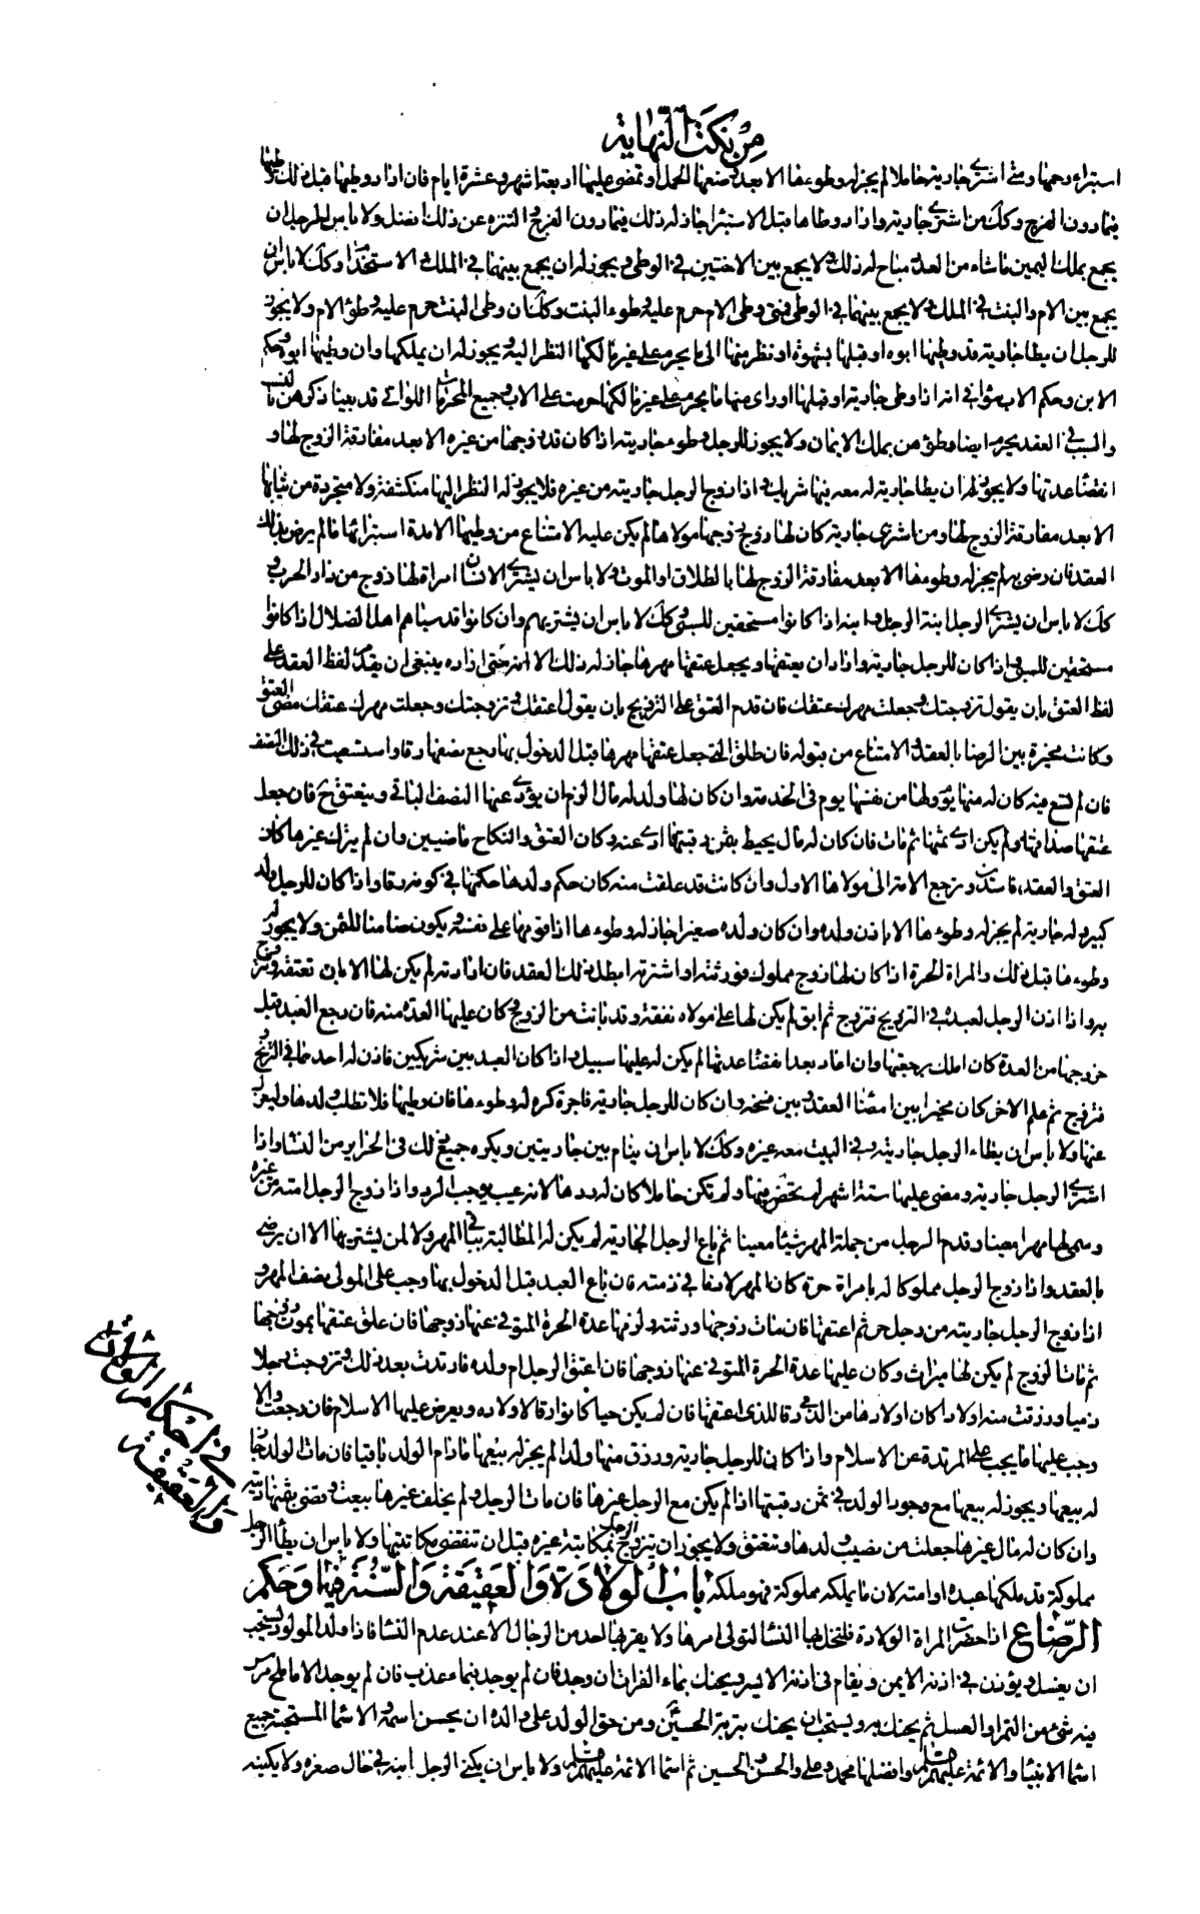 من نكت النهاية
استبراء رحمها ومتى اشترى جارية حاملا لم يجز له وطوءها الا بعد وضعها الحمل او تمضى عليها اربعة اشهر وعشرة ايام فان اراد وطيها قبل ذلك وطيها
فيما دون الفرج وكك من اشترى جارية واراد وطاها قبل الاستبرا جاز له ذلك فيما دون الفرج والتنزه عن ذلك افضل ولا باس للرجل ان
يجمع بملك اليمين ماشاء من العدد مباح له ذلك ولا يجمع بين الاختين في الوطى ويجوز له ان يجمع بينهما في الملك والاستخدام وكك لا باس ان
يجمع بين الام والبنت في الملك ولا يجمع بينهما في الوطى فمتى وطى الام حرم عليه وطوء البنت وكك ان وطى البنت حرم عليه وطؤ الام ولا يجوز
للرجل ان يطا جارية قد وطيها ابوه او قبلها بشهوة او نظر منها الى ما يحرم على غير مالكها النظر اليه ويجوز له ان يملكها وان وطيها ابوه وحكم
الابن وحكم الاب سوا في انه اذا وطى جارية او قبلها او راى منها ما يحرم على غير مالكها حرمت على الاب وجميع المحرمات اللواتي قد بينا ذكرهن بالنسب
والسبب في العقد يحرم ايضا وطؤهن بملك الايمان ولا يجوز للرجل وطوء جاريته اذا كان قد زوجها من غيره الا بعد مفارقة الزوج لها و
انقضا عدتها ولا يجوز له ان يطا جارية له معه فيها شريك واذا زوج الرجل جاريته من غيره فلا يجوز له النظر اليها منكشفة ولا متجردة من ثيابها
الا بعد مفارقة الزوج لها ومن اشترى جارية كان لها زوج زوجها مولاها لم يكن عليه الامتناع من وطيها الا مدة استبرائها مالم يرض بذلك
العقد فان رضى به لم يجز له وطوءها الا بعد مفارقة الزوج لها بالطلاق او الموت ولا باس ان يشترى الانسان امراة لها زوج من دار الحرب و
كك لا باس ان يشترى الرجل ابنة الرجل او ابنه اذا كانوا مستحقين للسبى وكك لا باس ان يشتريهم وان كانوا قد سباهم اهل الضلال اذا كانوا
مستحقين للسبى واذا كان للرجل جارية واراد ان يعتقها ويجعل عتقها مهرها جاز له ذلك الا انه متى اراده ينبغى ان يقدم لفظ العقد على
لفظ العتق بان يقول تزوجتك وجعلت مهرك عتقك فان قدم العتق على التزويج بان يقول اعتقك وتزوجتك وجعلت مهرك عتقك مضى العتق
وكانت مخيرة بين الرضا بالعقد والامتناع من قبوله فان طلق التى جعل عتقها مهرها قبل الدخول بها رجع نصفها رقا واستسعيت في ذلك النصف
فان لم تسع فيه كان له منها يوم ولها من نفسها يوم فى الخدمة وان كان لها ولد له مال الزم ان يؤدى عنها النصف الباقي وينعتق ح فان جعل
عتقها صداقها ولم يكن ادى ثمنها ثم مات فان كان له مال يحيط بثمن رقبتها ادى عنه وكان العتق والنكاح ماضيين وان لم يترك غيرها كان
العتق والعقد فاسدين وترجع الامة الى مولاها الاول وان كانت قد علقت منه كان حكم ولدها حكمها في كونه رقا واذا كان للرجل ولد
كبير وله جارية لم يجز له وطوءها الا باذن ولده وان كان ولده صغيرا جاز له وطوءها اذا قومها على نفسه ويكون ضامنا للثمن ولا يجوز له
وطوءها قبل ذلك والمراة الحرة اذا كان لها زوج مملوك فورثته او اشترته ابطل ذلك العقد فان ارادته لم يكن لها الا بان تعتقه وتتزوج
به واذا اذن الرجل لعبده في التزويج فتزوج ثم ابق لم يكن لها على مولاه نفقة وقد بانت من الزوج وكان عليها العدة منه فان رجع العبد قبل
خروجها من العدة كان املك برجعتها وان عاد بعد انقضا عدتها لم يكن له عليها سبيل واذا كان العبد بين شريكين فاذن له احدهما في التزويج
فتزوج ثم علم الاخر كان مخيرا بين امضا العقد وبين فسخه وان كان للرجل جارية فاجرة كره له وطوءها فان وطيها فلا تطلب ولدها وليعزل
عنها ولا باس ان يطاء الرجل جاريته وفي البيت معه غيره وكك لا باس ان ينام بين جاريتين ويكره جميع ذلك في الحراير من النسا واذا
اشترى الرجل جارية ومضى عليها ستة اشهر لم تحض فيها ولم تكن حاملا كان له ردها لانه عيب يوجب الرد واذا زوج الرجل امته من غيره
وسمى لها مهرا معينا وقدم الرجل من جملة المهر شيئا معينا ثم باع الرجل الجارية لم يكن له المطالبة بباقي المهر ولا لمن يشتريها الا ان يرضى
بالعقد واذا زوج الرجل مملوكا له بامراة حرة كان المهر لازما في ذمته فان باع العبد قبل الدخول بها وجب على المولى نصف المهر و
اذا زوج الرجل جاريته من رجل حر ثم اعتقها فان مات زوجها ورثته ولزمها عدة الحرة المتوفى عنها زوجها فان علق عتقها بموت زوجها
ثم مات الزوج لم يكن لها ميراث وكان عليها عدة الحرة المتوفى عنها زوجها فان اعتق الرجل ام ولده فارتدت بعد ذلك وتزوجت رجلا
ذميا ورزقت منه اولادا كان اولادها من الذمى رقا للذى اعتقها فان لم يكن حيا كانوا رقا لاولاده ويعرض عليها الاسلام فان رجعت والا
وجب عليها ما يجب على المرتدة عن الاسلام واذا كان للرجل جارية ورزق منها ولدا لم يجز له بيعها مادام الولد باقيا فان مات الولد جاز
له بيعها ويجوز له بيعها مع وجود الولد في ثمن رقبتها اذا لم يكن مع الرجل غيرها فان مات الرجل ولم يخلف غيرها بيعت وقضى بثمنها دينه
وان كان له مال غيرها جعلت من نصيب ولدها وتنعتق ولا يجوز ان يتزوج الرجل بمكاتبة غيره قبل ان تنقضى مكاتبتها ولا باس ان يطأ الرجل
مملوكة قد ملكها عبده او امته لان ما يملكه مملوكه فهو ملكه باب الولادة والعقيقة والسنة فيها وحكم
الرضاع اذا حضرت المراة الولادة فلتخل بها النسا لتولى امرها ولا يقربها احد من الرجال الا عند عدم النسا فاذا ولد المولود يستحب
ان يغسل ويؤذن في اذنه الايمن ويقام فى اذنه الايسر ويحنك بماء الفرات ان وجد فان لم يوجد فبماء عذب فان لم يوجد الا ما ملح مرس
فيه شئ من التمر او العسل ثم يحنك به ويستحب ان يحنك بتربة الحسين ومن حق الولد على والده ان يحسن اسمه والاسما المستحبة جميع
اسما الانبيا والائمة عليهم السلم وافضلها محمد وعلى والحسن والحسين ثم اسما الائمة عليهم السلم ولا باس ان يكنى الرجل ابنه في حال صغره ولا يكنيه
في احكام الولادة
والعقيقة